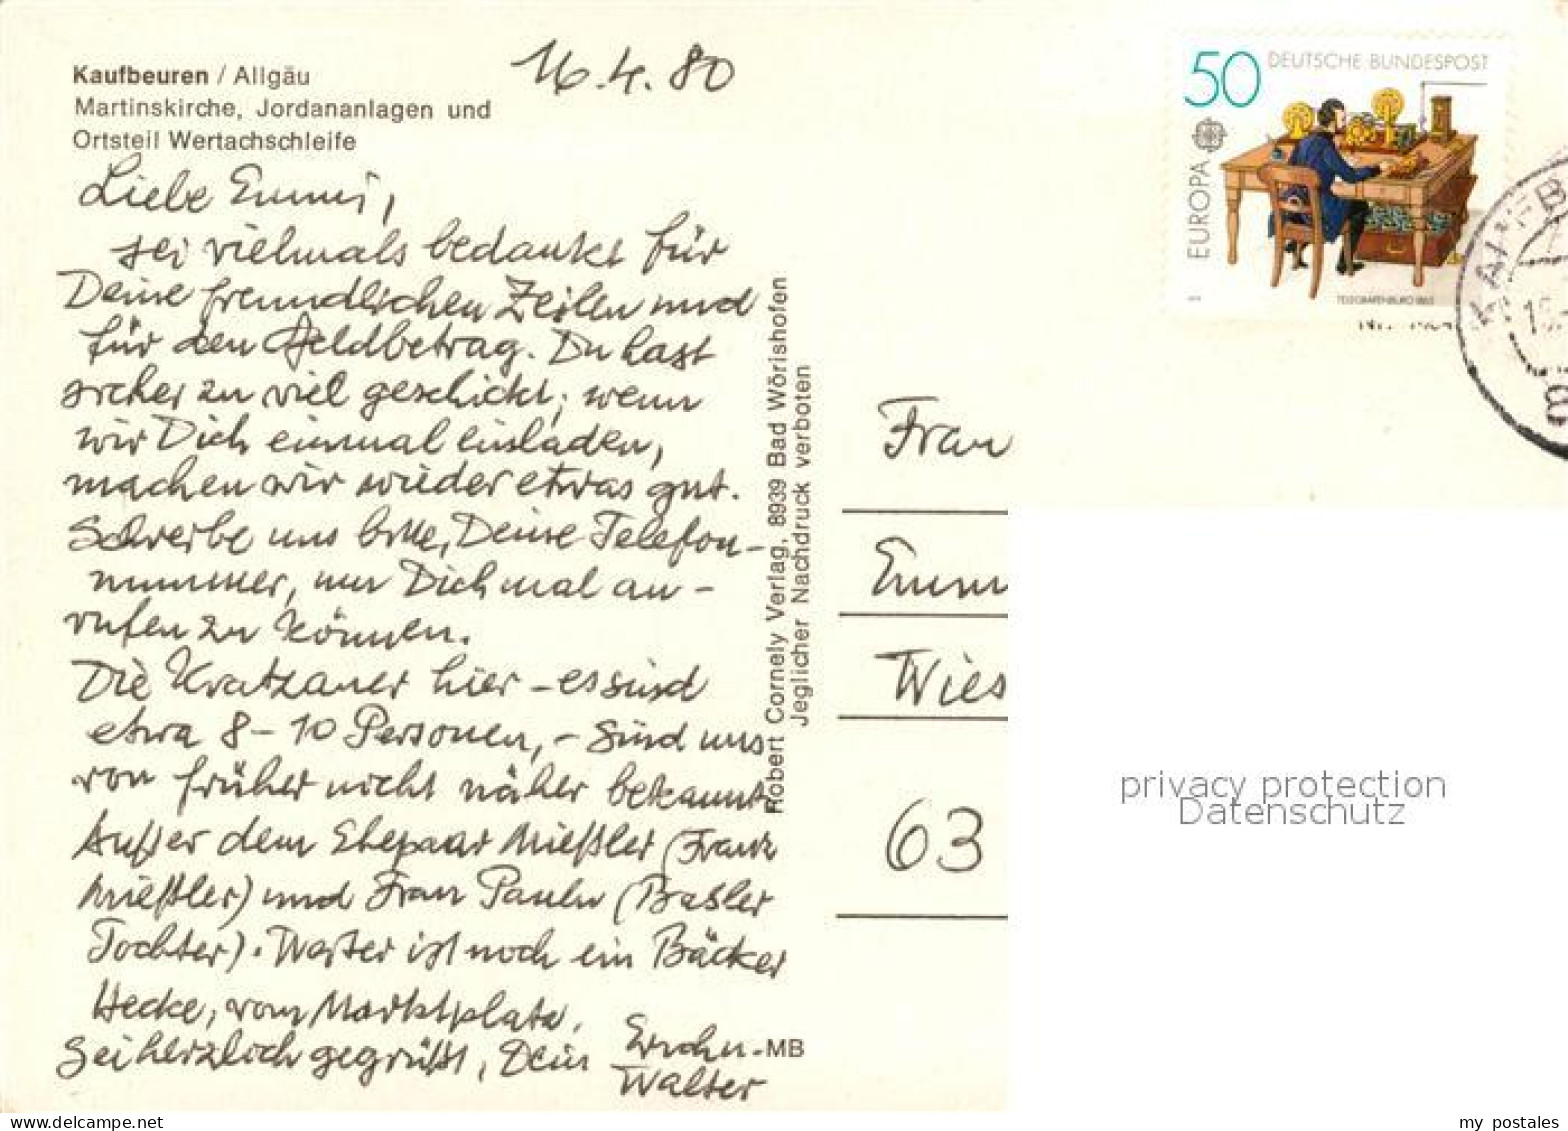 Kaufbeuren / Allgäu
Martinskirche, Jordananlagen und
Ortsteil Wertachschleife
16.4.80
Liebe Emmi,
sei vielmals bedankt für
Deine freundlichen Zeilen und
für den Geldbetrag. Du hast
sicher zu viel geschickt; wenn
wir Dich einmal einladen,
machen wir wieder etwas gut.
Schreibe uns bitte, Deine Telefon-
nummer, um Dich mal an-
rufen zu können.
Die Kratzauer hier – es sind
etwa 8 – 10 Personen, – sind uns
von früher nicht näher bekannt
Außer dem Ehepaar Mießler (Franz
Mießler) und Frau Paulu (Basler
Tochter). Weiter ist noch ein Bäcker
Hecke, vom Marktplatz.
Sei herzlich gegrüßt, Dein
Walter
MB
Robert Cornely Verlag, 8939 Bad Wörishofen
Jeglicher Nachdruck verboten
50 DEUTSCHE BUNDESPOST
EUROPA
TELEGRAFENBÜRO 1863
KAUFB
Frau
Emm
Wies
63
privacy protection
Datenschutz
delcampe.net
my_postales